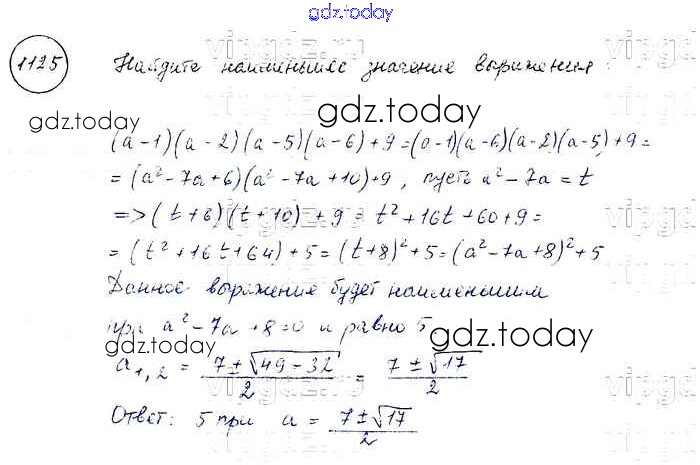 gdz.today
1125 Найдите наименьшее значение выражения:
gdz.today
gdz.today
(a-1)(a-2)(a-5)(a-6)+9=(a-1)(a-6)(a-2)(a-5)+9=
=(a²-7a+6)(a²-7a+10)+9, пусть a²-7a=t
=>(t+6)(t+10)+9=t²+16t+60+9=
=(t²+16t+64)+5=(t+8)²+5=(a²-7a+8)²+5
Данное выражение будет наименьшим
при a²-7a+8=0 и равно 5
gdz.today
gdz.today
a₁,₂ = (7±√(49-32))/2 = (7±√17)/2
Ответ: 5 при a = (7±√17)/2